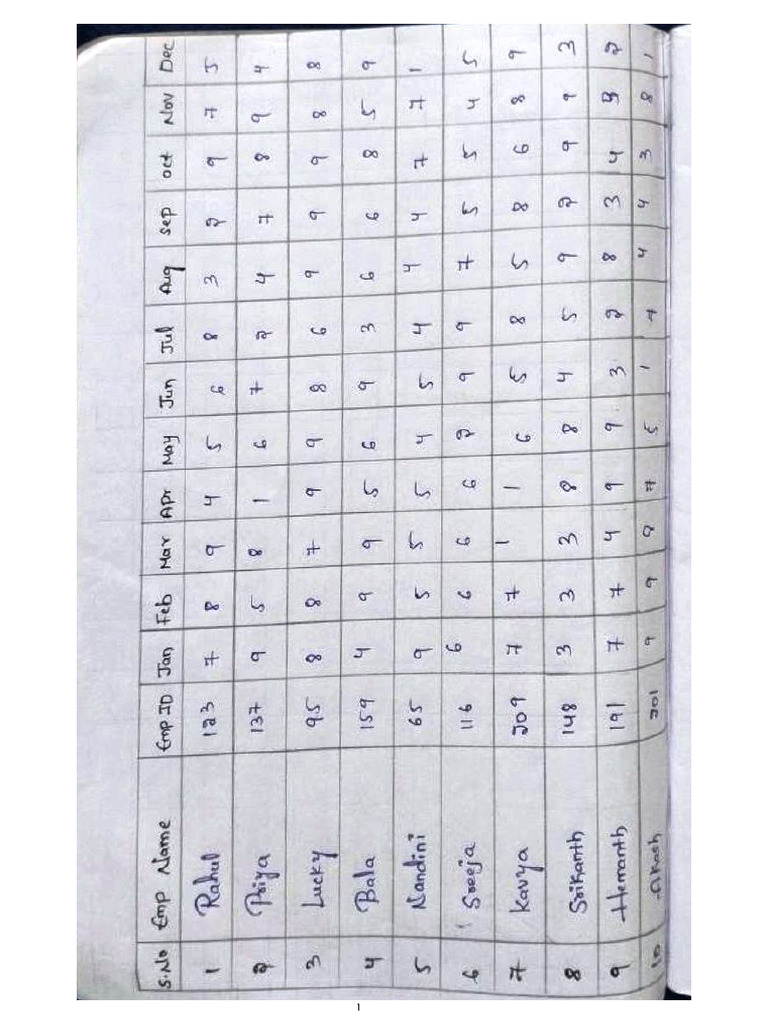 S.No Emp Name Emp ID Jan Feb Mar Apr May Jun Jul Aug Sep Oct Nov Dec
1 Rahul 123 7 8 9 4 5 6 8 3 2 9 7 5
2 Priya 137 9 5 8 1 6 7 2 4 7 8 9 4
3 Lucky 95 8 8 7 9 9 8 6 9 9 9 8 8
4 Bala 159 4 9 9 5 6 9 3 6 6 8 5 9
5 Nandini 65 9 5 5 5 4 5 4 4 4 7 7 1
6 Sreeja 116 6 6 6 6 2 9 9 7 5 5 4 5
7 Kavya 209 7 7 1 1 6 5 8 5 8 6 8 9
8 Srikanth 148 3 3 3 8 8 4 5 9 2 9 9 3
9 Hemanth 191 7 7 4 9 9 3 2 8 3 4 2
10 Akash 201 9 9 8 7 5 1 7 4 4 3 8 1
1